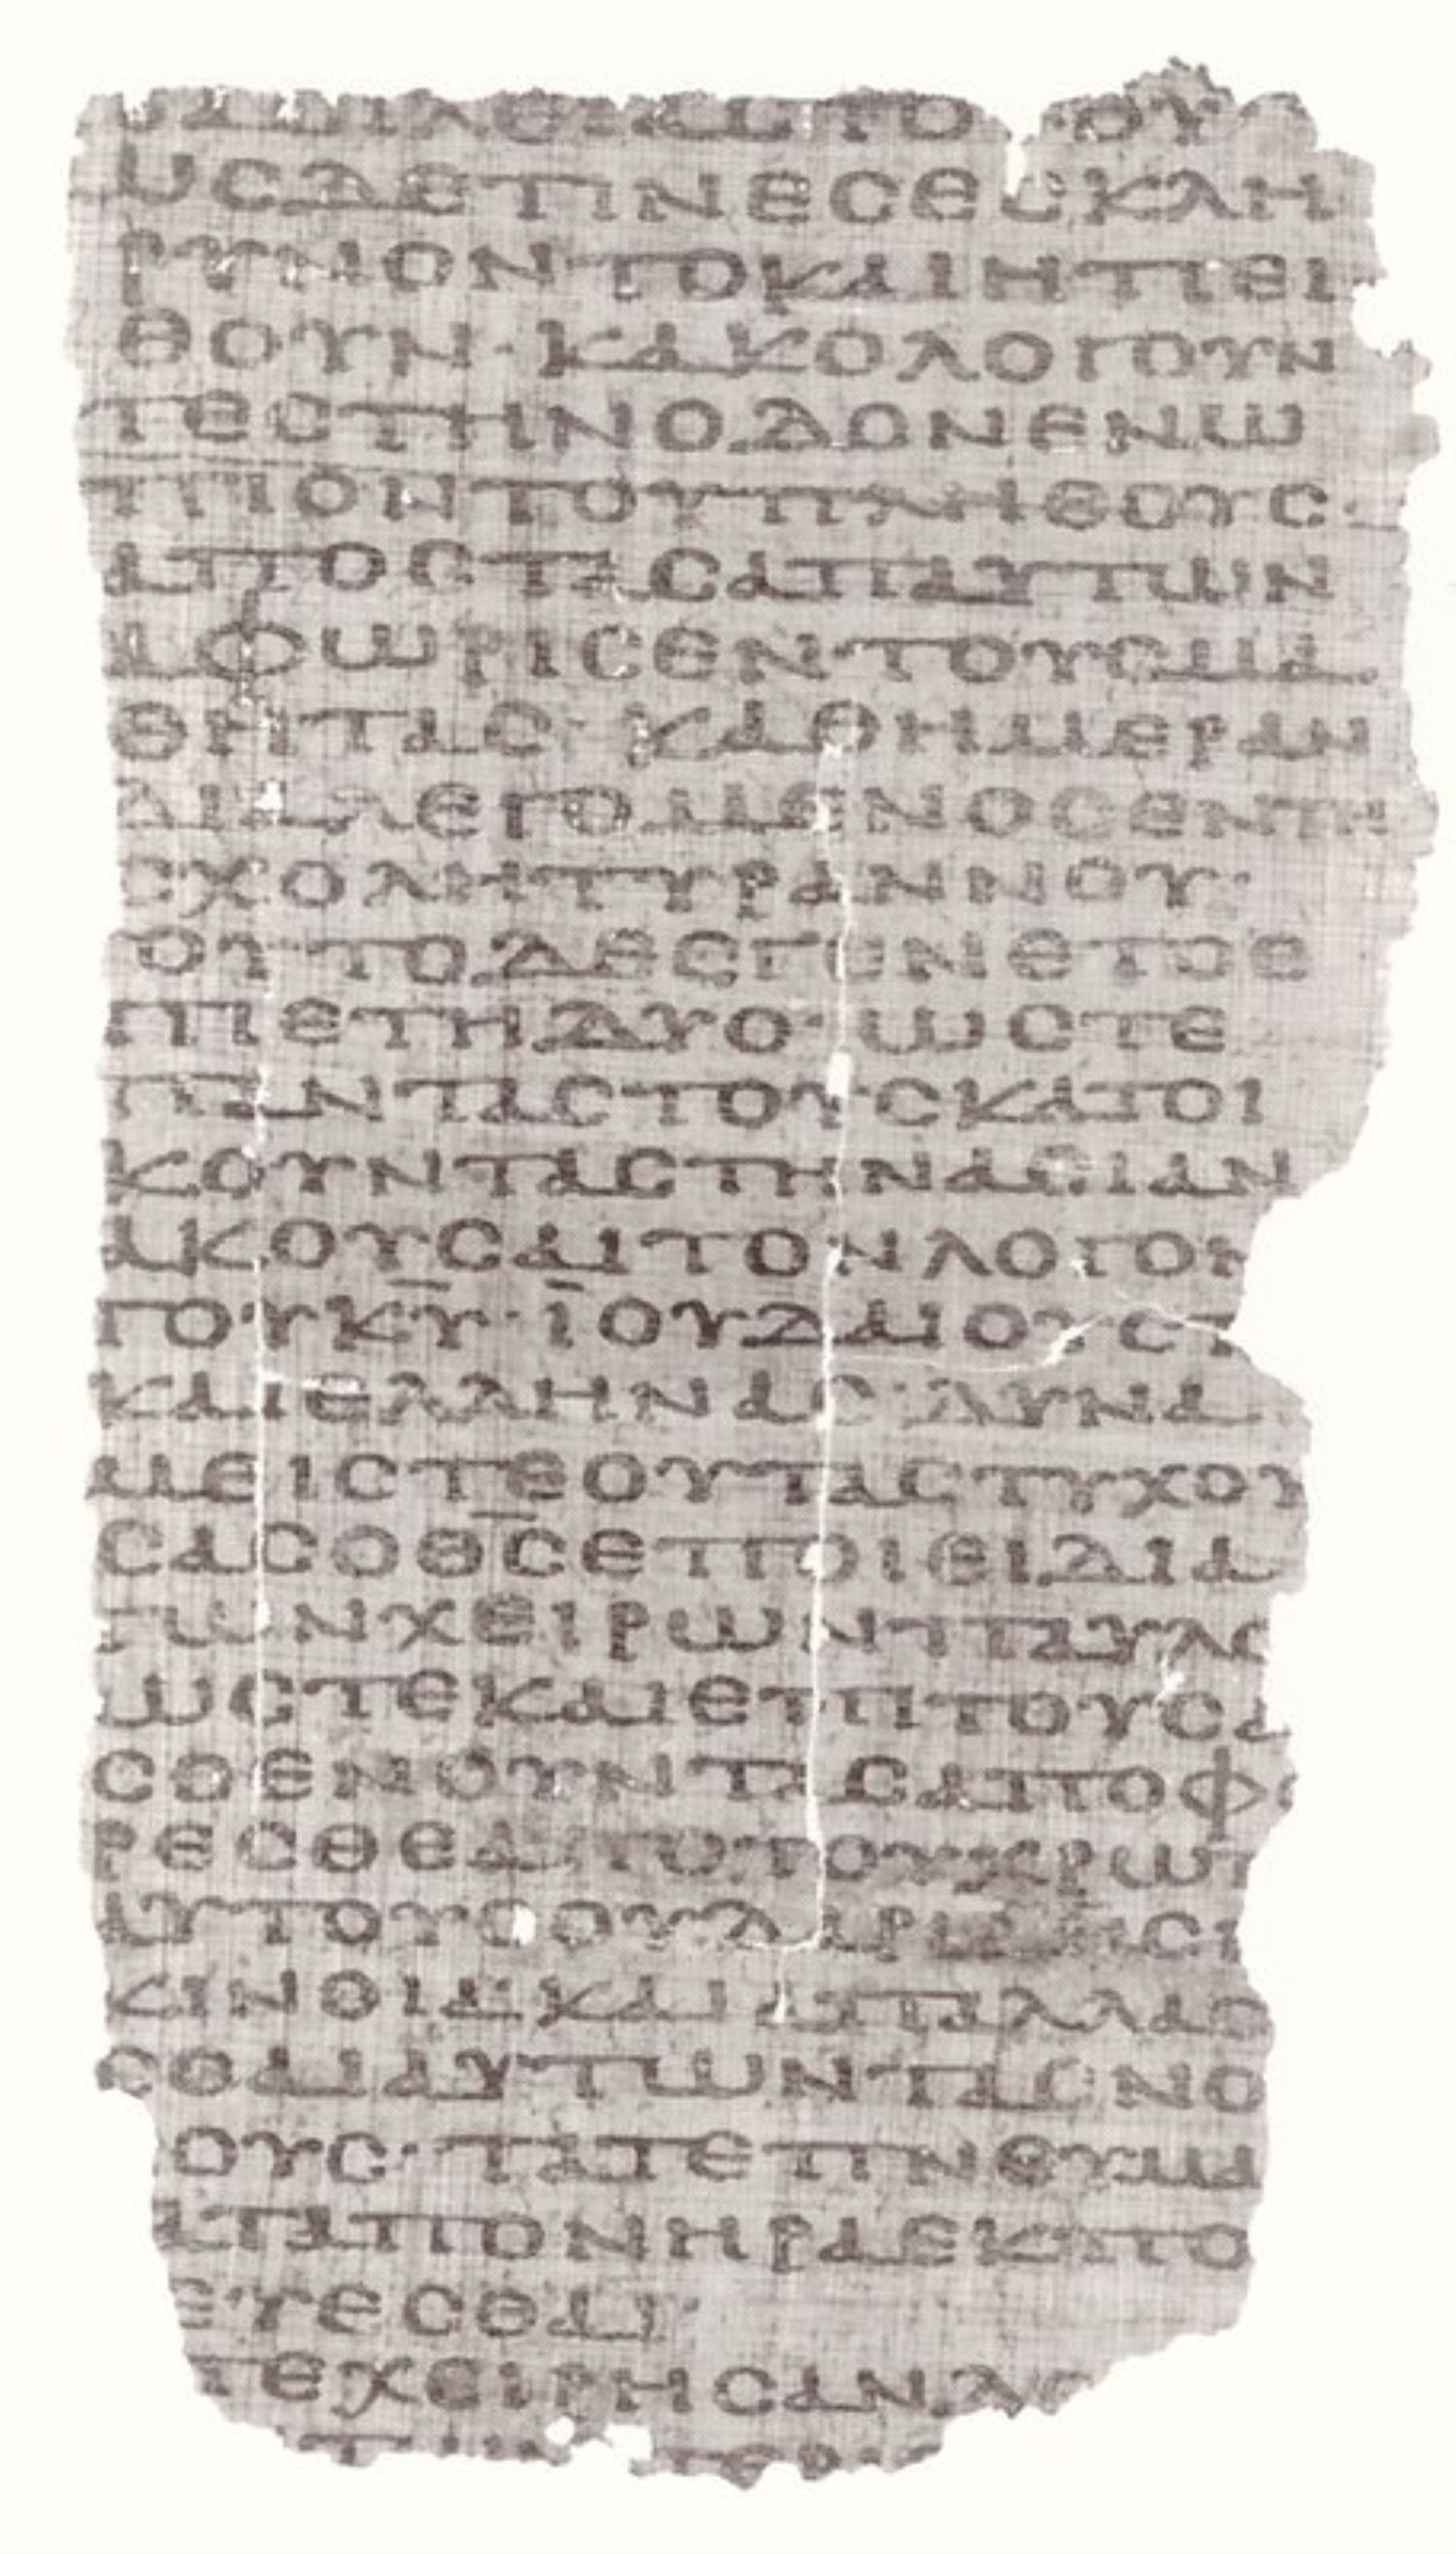 ΙΛΕΙΑϹΤΟ ΟΥ
ΩϹΔΕΤΙΝΕϹΕϹΚΛΗ
ΡΥΝΟΝΤΟΚΑΙΗΠΕΙ
ΘΟΥΝ·ΚΑΚΟΛΟΓΟΥΝ
ΤΕϹΤΗΝΟΔΟΝΕΝΩ
ΠΙΟΝΤΟΥΠΛΗΘΟΥϹ·
ΑΠΟϹΤΑϹΑΠΑΥΤΩΝ
ΑΦΩΡΙϹΕΝΤΟΥϹΜΑ
ΘΗΤΑϹ·ΚΑΘΗΜΕΡΑΝ
ΔΙΑΛΕΓΟΜΕΝΟϹΕΝΤΗ
ϹΧΟΛΗΤΥΡΑΝΝΟΥ·
ΟΥΤΟΔΕΕΓΕΝΕΤΟΕ
ΠΙΕΤΗΔΥΟ·ΩϹΤΕ
ΠΑΝΤΑϹΤΟΥϹΚΑΤΟΙ
ΚΟΥΝΤΑϹΤΗΝΑϹΙΑΝ
ΑΚΟΥϹΑΙΤΟΝΛΟΓΟΝ
ΤΟΥΚ̅Υ̅·ΙΟΥΔΑΙΟΥϹΤ
ΚΑΙΕΛΛΗΝΑϹ·ΔΥΝΑ
ΜΕΙϹΤΕΟΥΤΑϹΤΥΧΟΥ
ϹΑϹΟΘ̅Ϲ̅ΕΠΟΙΕΙΔΙΑ
ΤΩΝΧΕΙΡΩΝΠΑΥΛΟ
ΩϹΤΕΚΑΙΕΠΙΤΟΥϹΑ
ϹΘΕΝΟΥΝΤΑϹΑΠΟΦΕ
ΡΕϹΘΕΑΠΟΤΟΥΧΡΩΤ
ΑΥΤΟΥϹΟΥΔΑΡΙΑΗϹΙ
ΚΙΝΘΙΑΚΑΙΑΠΑΛΛΑϹ
ϹΘΑΙΑΥΤΩΝΤΑϹΝΟ
ΟΥϹ·ΤΑΤΕΠΝΕΥΜΑ
ΑΤΑΠΟΝΗΡΑΕΚΠΟ
ΕΥΕϹΘΑΙ·
ΤΕΧΕΙΡΗϹΑΝΔΕ